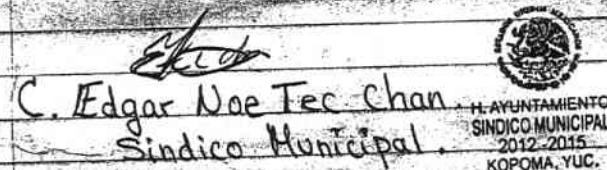 C. Edgar Noe Tec Chan.
Sindico Municipal.
H. AYUNTAMIENTO
SINDICO MUNICIPAL
2012-2015
KOPOMA, YUC.